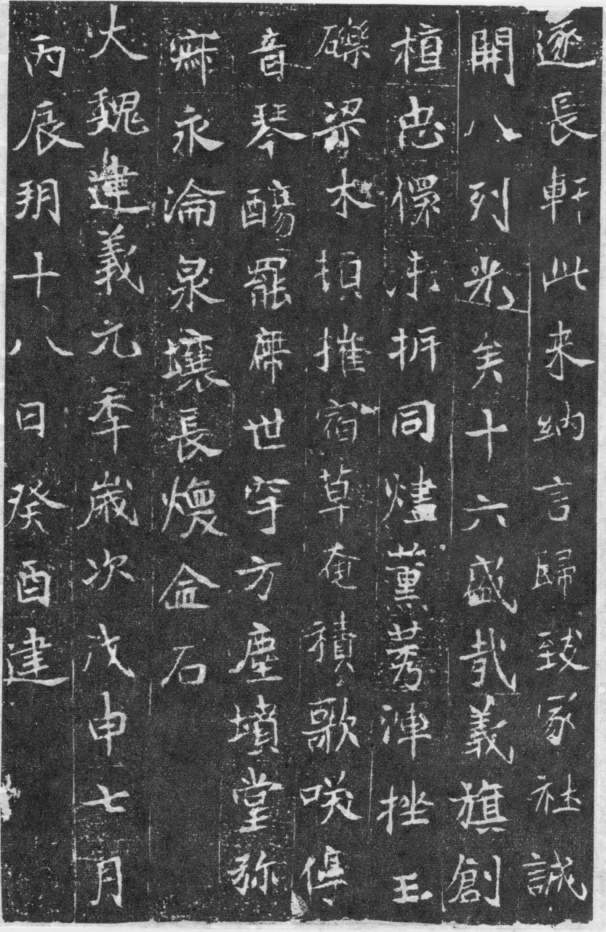 遂長軒此来納言歸致冢社誠
開八列光矣十六盛哉義旗創
植忠傑未折同燼薰莠渾挫玉
礫梁木損摧宿草奄積歌咲停
音琴醻罷席世穸方塵墳堂弥
寐永淪泉壤長煥金石
大魏建義元年歲次戊申七月
丙辰玥十八日癸酉建